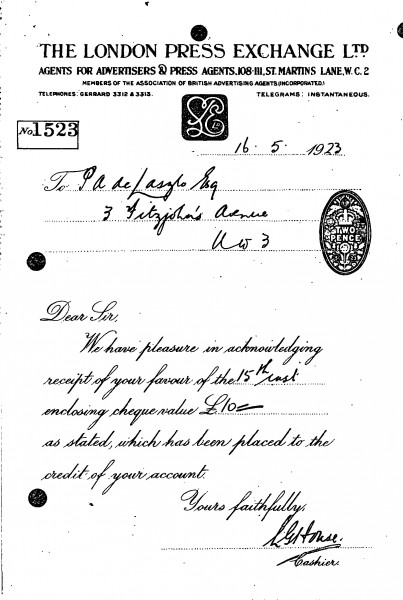 THE LONDON PRESS EXCHANGE LTD
AGENTS FOR ADVERTISERS & PRESS AGENTS. 108-111, ST. MARTINS LANE, W.C.2
MEMBERS OF THE ASSOCIATION OF BRITISH ADVERTISING AGENTS (INCORPORATED)
TELEPHONES: GERRARD 3312 & 3313. TELEGRAMS: INSTANTANEOUS.
No 1523
16. 5 1923
To P A de Laszlo Esq
3 Fitzjohn's Avenue
NW 3
TWO
PENCE
Dear Sir,
We have pleasure in acknowledging
receipt of your favour of the 15th inst
enclosing cheque value £10=
as stated, which has been placed to the
credit of your account.
Yours faithfully,
House.
Cashier.